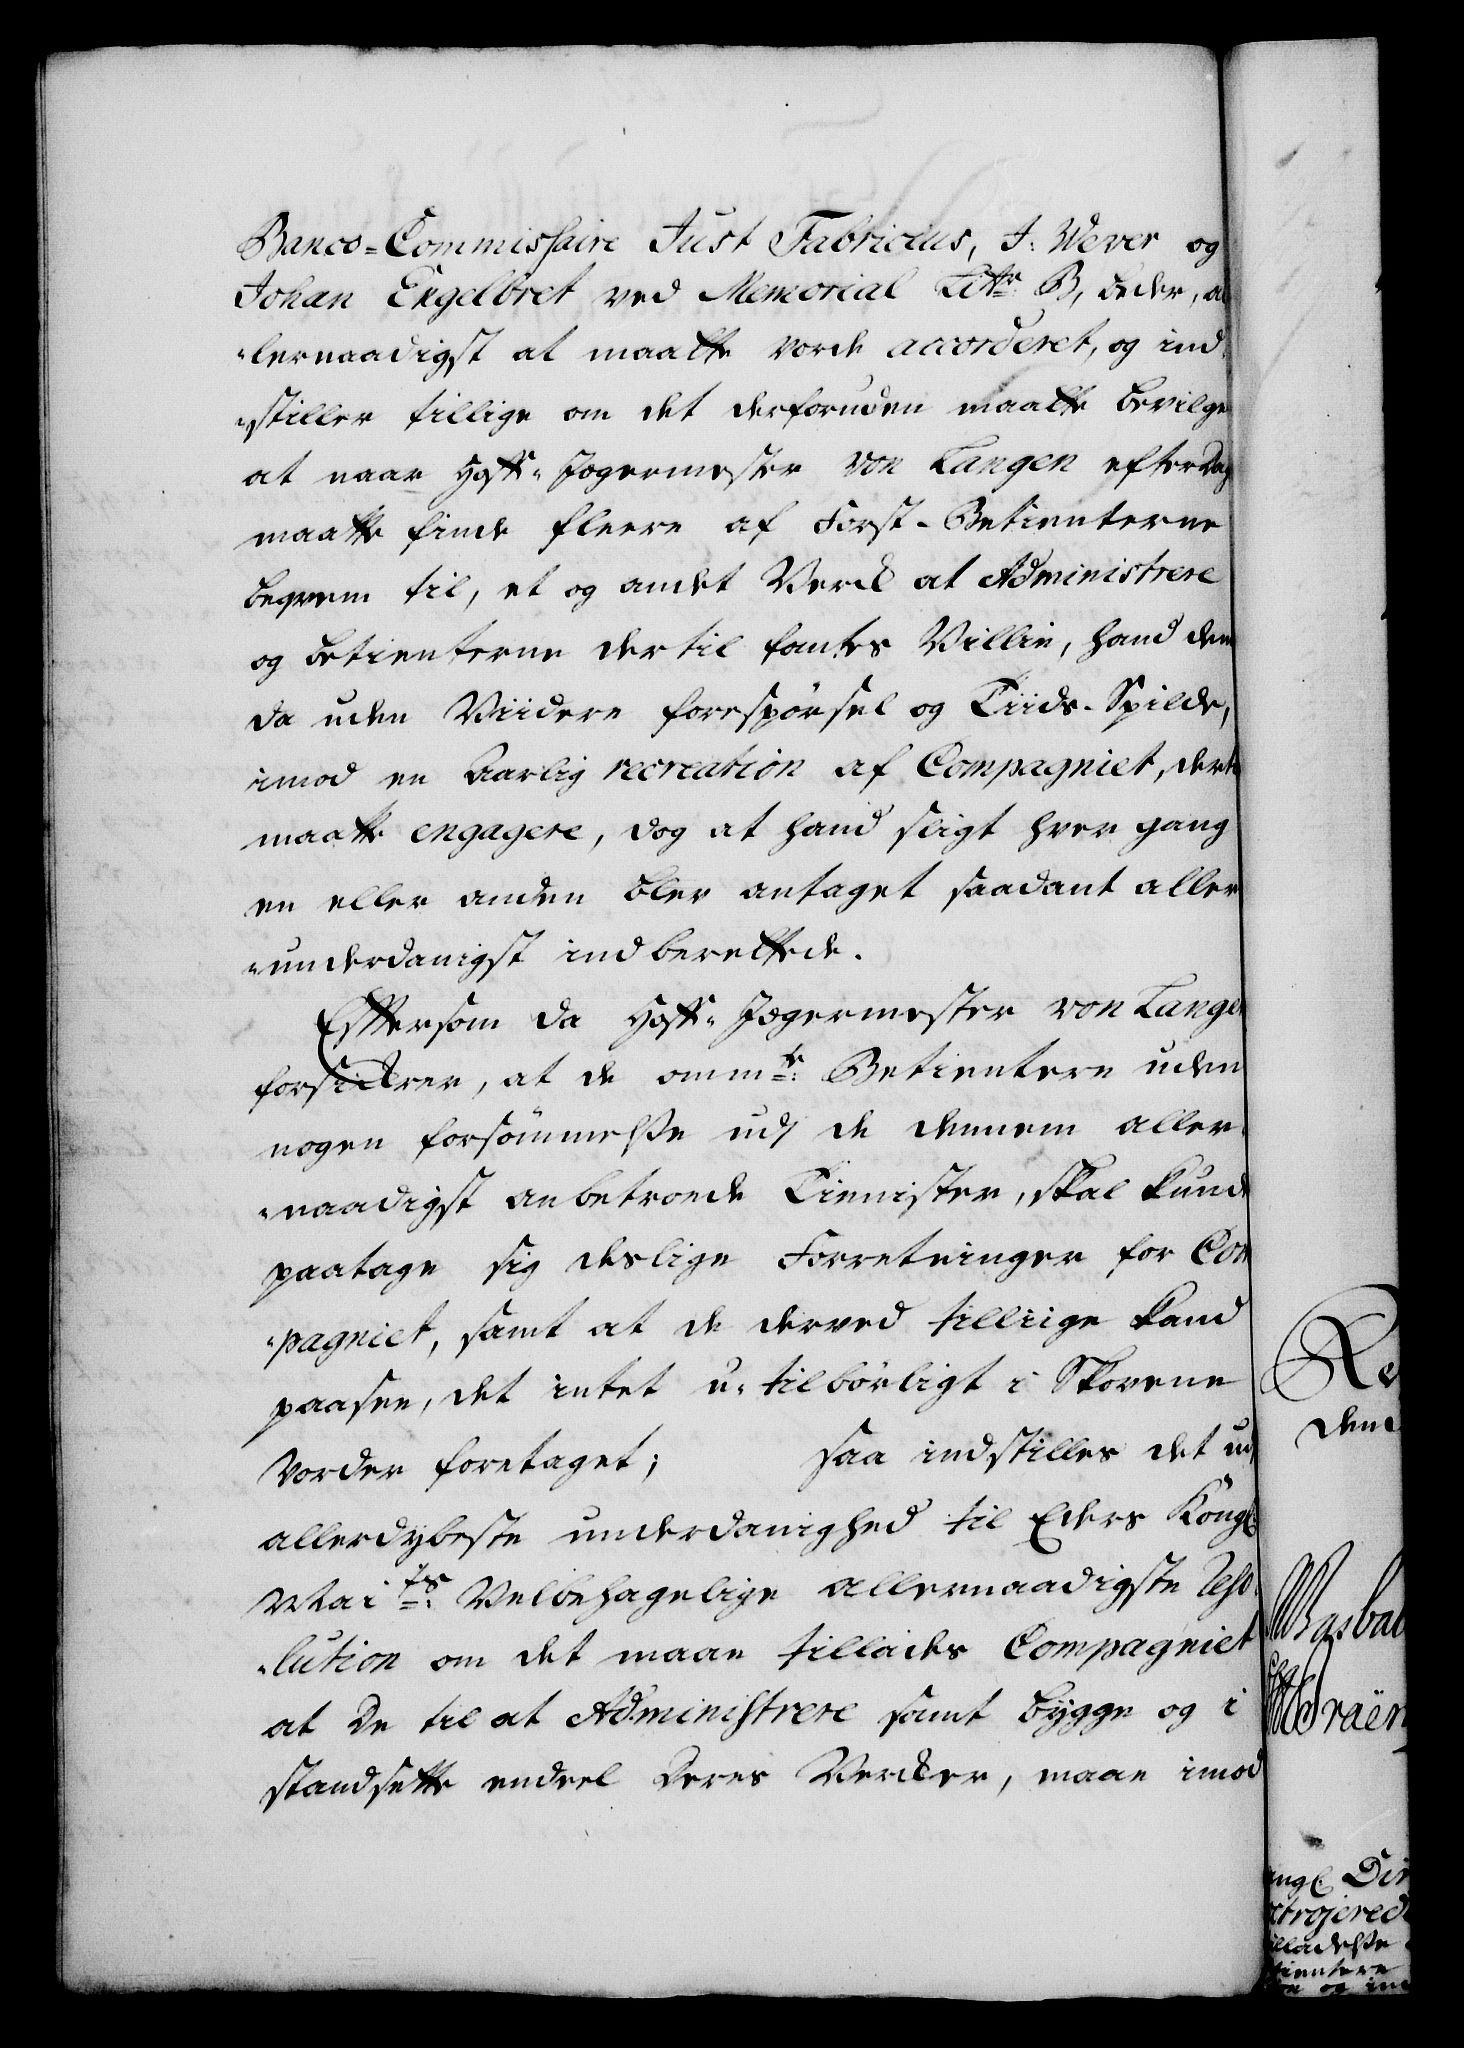 Banco-Commissaire Just Fabricius, J: Wever og
Johan Engelbret ved Memorial Littr: B, beder, al
-lernaadigst at maatte vorde accorderet, og ind-
-stiller tillige om det derforuden maatte bevilges
at naar Hoff-Jegermester von Langen efter Dags
maatte finde fleere af Forst-Betienterne
beqvem til, et og andet Verck at Administrere
og betienterne dertil fantes Villin, hand dem
da uden Viidere forespörsel og Tiids-Spilde,
imod en aarlig recreation af Compagniet, dertil
maatte engagere, dog at hand sligt hver gang
en eller anden blev antaget saadant aller
-underdanigst indberettede.
Eftersom da Hoff-Jægermester von Langen
forsickrer, at de ommte: Betientere uden
nogen forsömmelse udj de dennem aller-
-naadigst anbetroede Tienister, skal kunde
paatage sig deslige Forretninger for Com
-pagniet, samt at de derved tilliige kand
paasee, det intet u-tilbörligt i Skovene
vorder foretaget; saa indstilles det udj
allerdybeste underdanighed til Eders Kongl:
Maits: Velbehagelige allernaadigste Reso-
-lution om det maae tillades Compagniet
at De til at Administrere samt bygge og i
standsette endeel Deres Vercker, maae imod
Re
den
ngl: Dir
ctrojered
illadelse
tientere
og ind